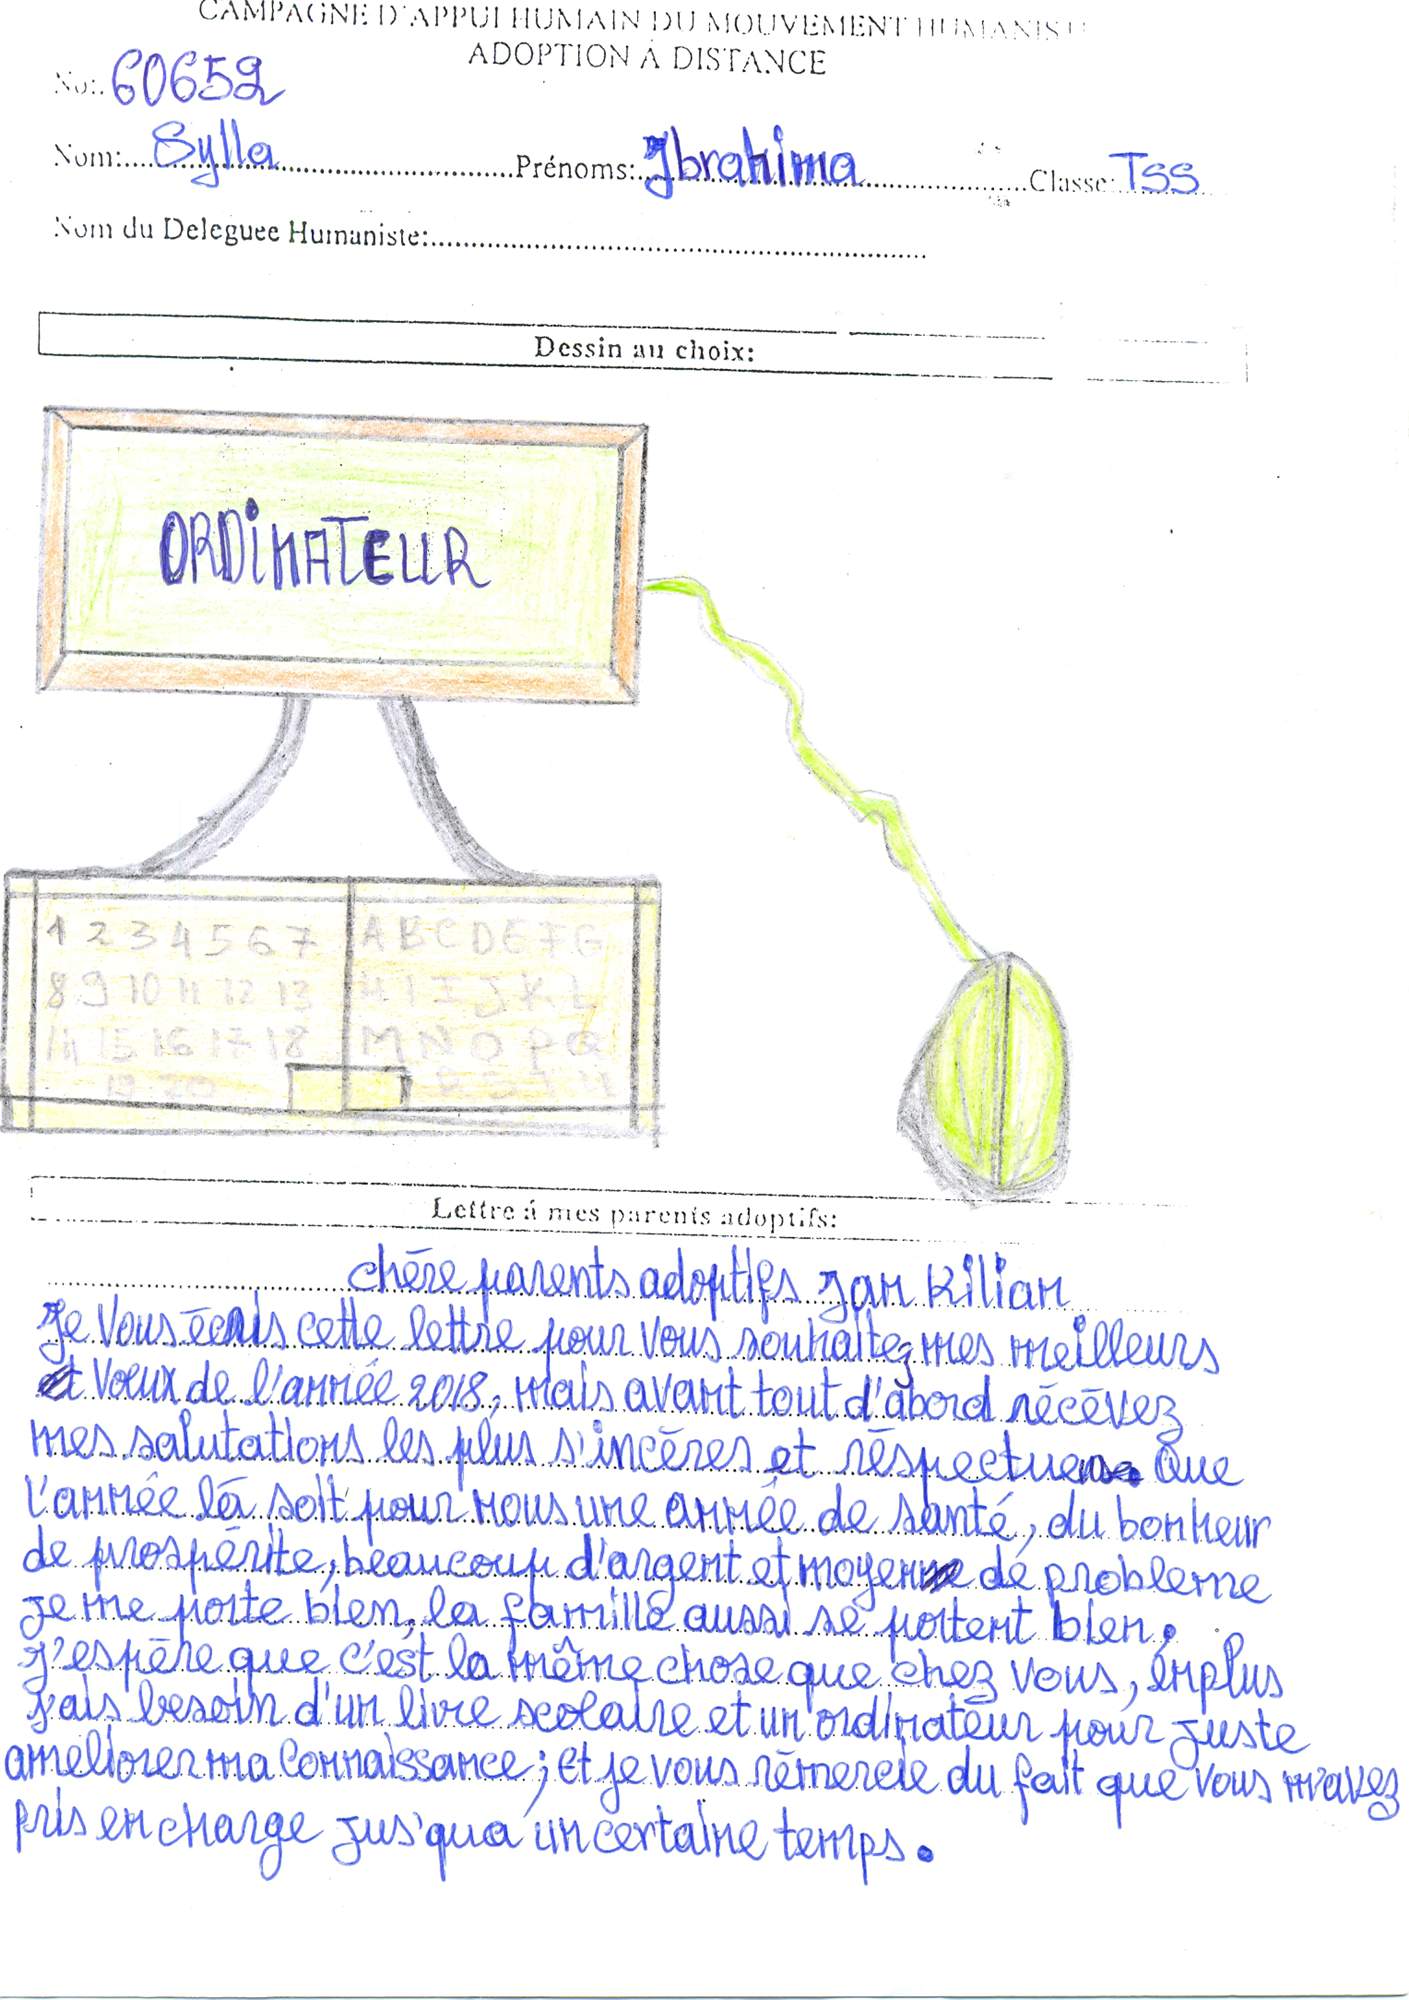 CAMPAGNE D'APPUI HUMAIN DU MOUVEMENT HUMANISTE
ADOPTION À DISTANCE
No: 60652
Nom: Sylla Prénoms: Ibrahima Classe: TSS
Nom du Deleguee Humaniste:
Dessin au choix:
ORDiNATEUR
1 2 3 4 5 6 7 A B C D E F G
8 9 10 11 12 13 H I J K L
14 15 16 17 18 M N O P Q
19 20 R S T U
Lettre á mes parents adoptifs:
chēre parents adoptifs Jan Kilian
Je vous ēcris cette lettre pour vous souhaitez mes meilleurs
vœux de l'année 2018, mais avant tout d'abord rēcēvez
mes salutations les plus s'incēres et rēspectueuse. Que
l'année lā soit pour nous une année de santé, du bonheur
de prospérite, beaucoup d'argent et moyenne de probleme
je me porte bien, la famille aussi se portent bien,
J'espēre que c'est la même chose que chez vous, enplus
j'ais besoin d'un livre scolaire et un ordinateur pour juste
ameliorer ma connaissance; et je vous rēmercie du fait que vous m'avez
pris en charge jus'qua un certaine temps.